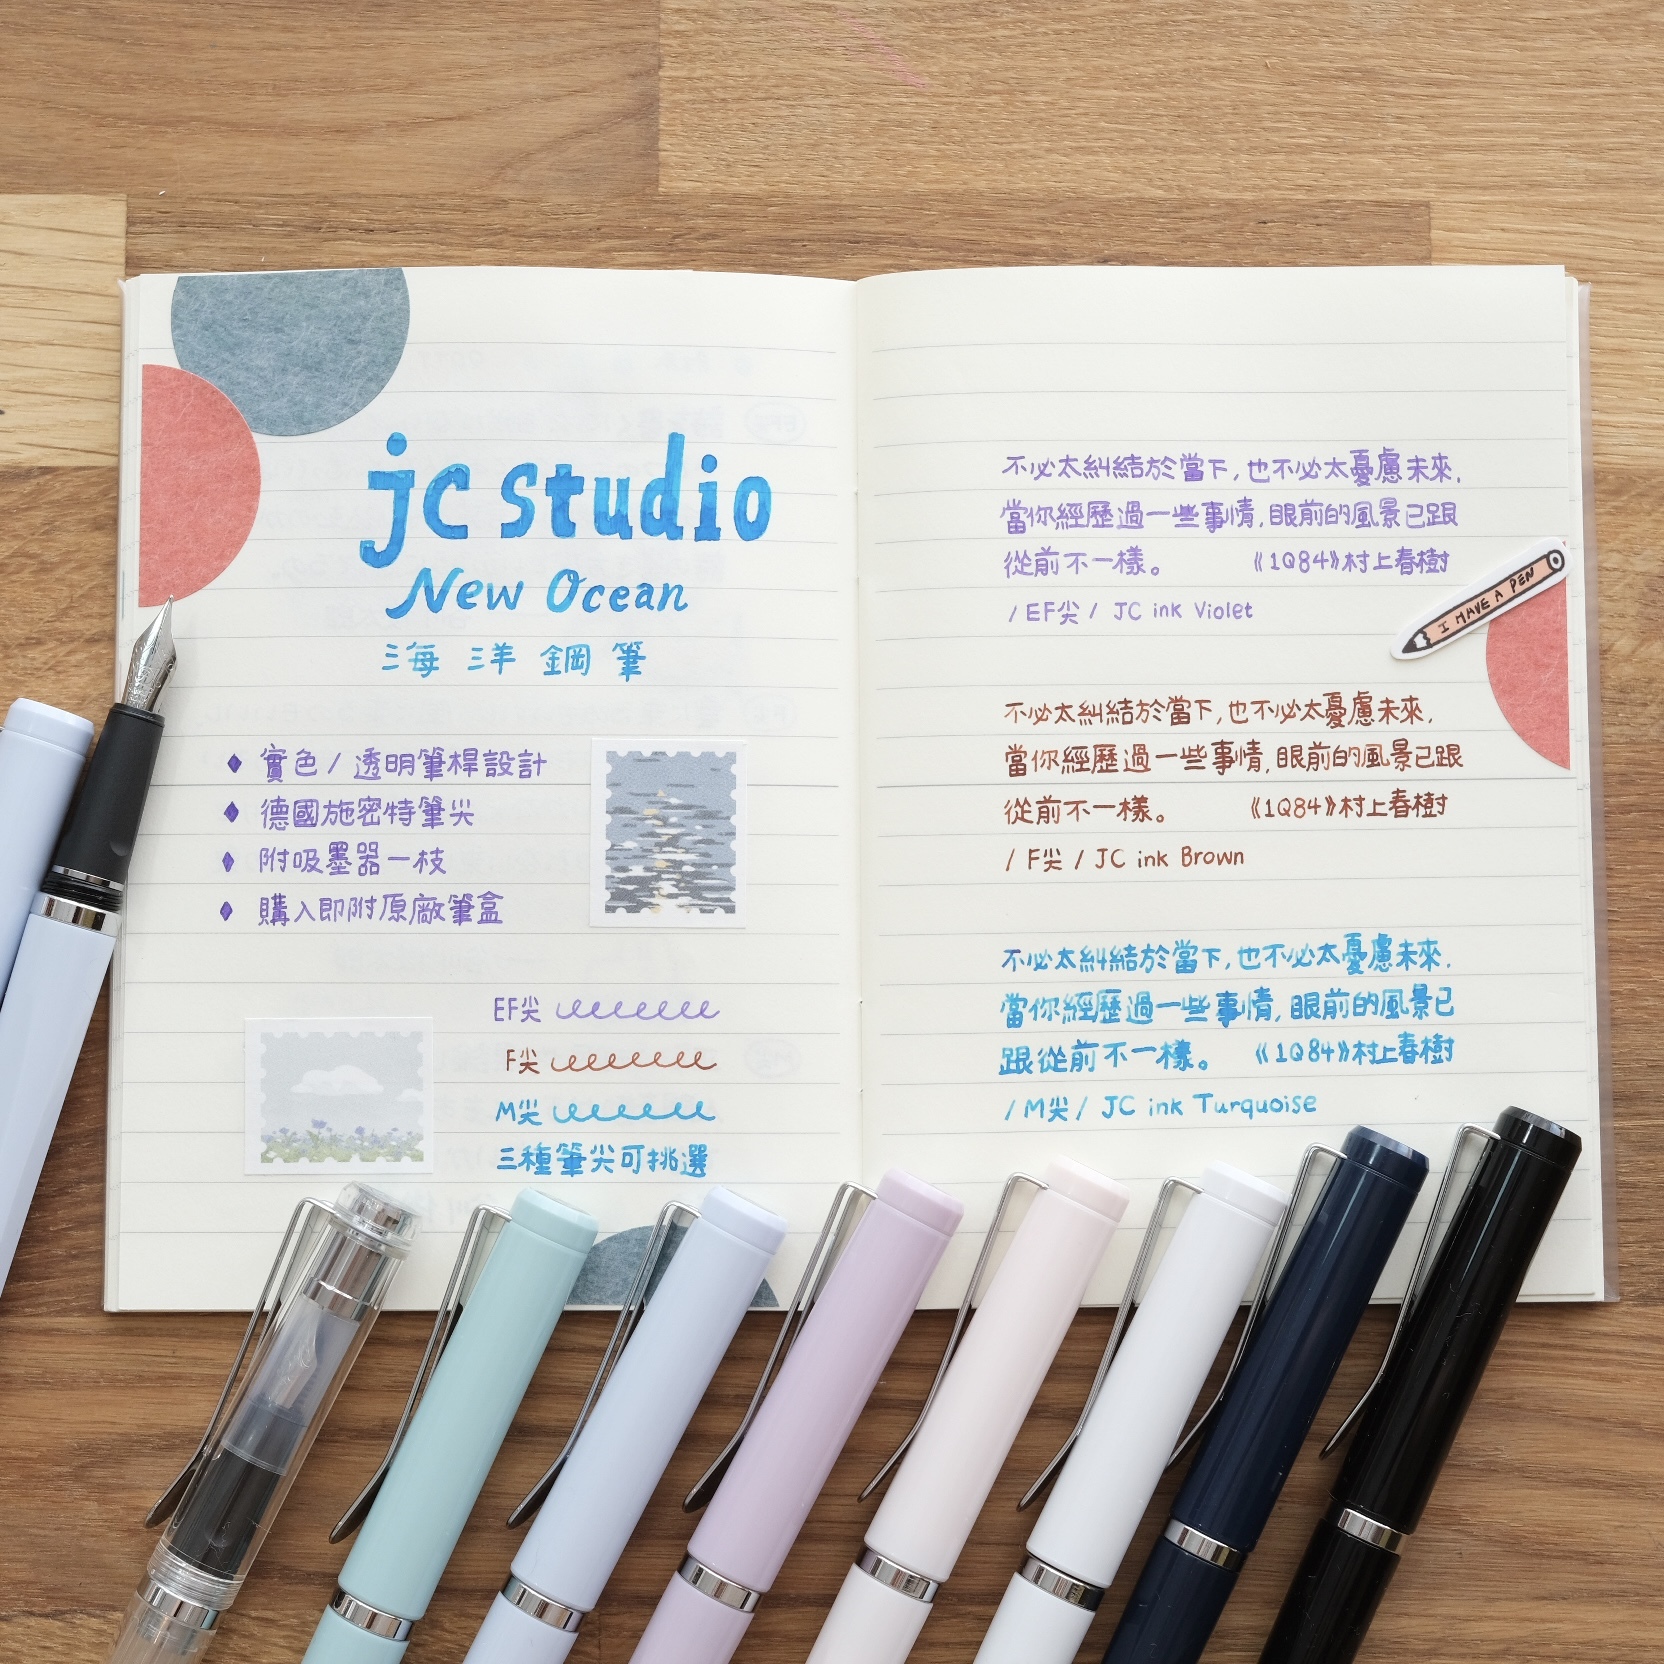 jc studio
New Ocean
海洋鋼筆
◆ 實色 / 透明筆桿設計
◆ 德國施密特筆尖
◆ 附吸墨器一枝
◆ 購入即附原廠筆盒
EF尖
F尖
M尖
三種筆尖可挑選
不必太糾結於當下，也不必太憂慮未來．
當你經歷過一些事情，眼前的風景已跟
從前不一樣。 《1Q84》村上春樹
/ EF尖 / JC ink Violet
I HAVE A PEN
不必太糾結於當下，也不必太憂慮未來．
當你經歷過一些事情，眼前的風景已跟
從前不一樣。 《1Q84》村上春樹
/ F尖 / JC ink Brown
不必太糾結於當下，也不必太憂慮未來．
當你經歷過一些事情，眼前的風景已
跟從前不一樣。 《1Q84》村上春樹
/ M尖 / JC ink Turquoise